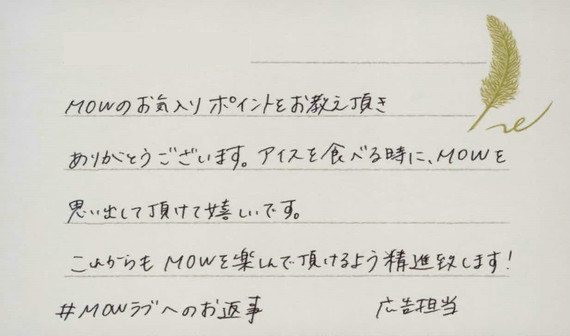 MOWのお気入りポイントをお教え頂き
ありがとうございます。アイスを食べる時に、MOWを
思い出して頂けて嬉しいです。
これからもMOWを楽しんで頂けるよう精進致します!
#MOWラブへのお返事 広告担当